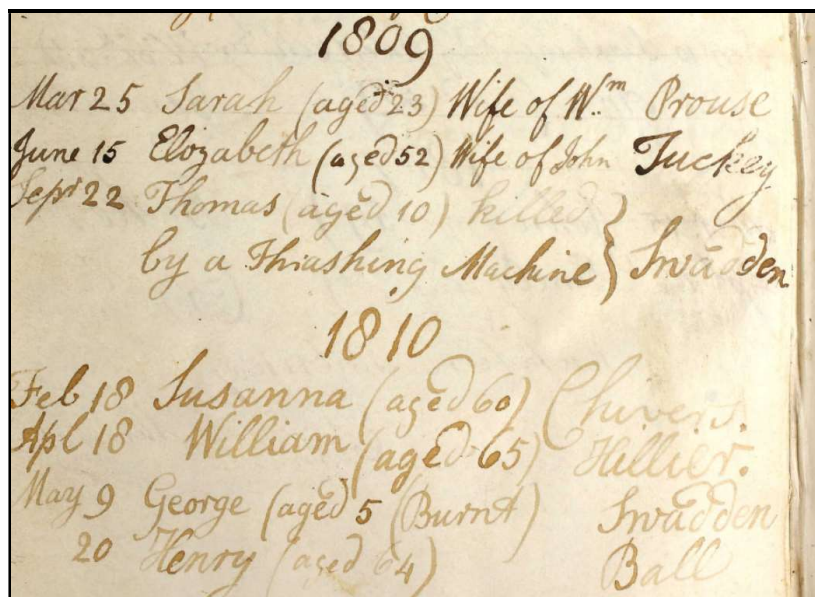 1809
Mar 25 Sarah (aged 23) Wife of Wm Prouse
June 15 Elizabeth (aged 52) Wife of John Tuckey
Sepr 22 Thomas (aged 10) killed
by a Thrashing Machine } Swadden
1810
Feb 18 Susanna (aged 60) Chivers.
Apl 18 William (aged 65) Hillier.
May 9 George (aged 5 (Burnt) Swadden
20 Henry (aged 64) Ball